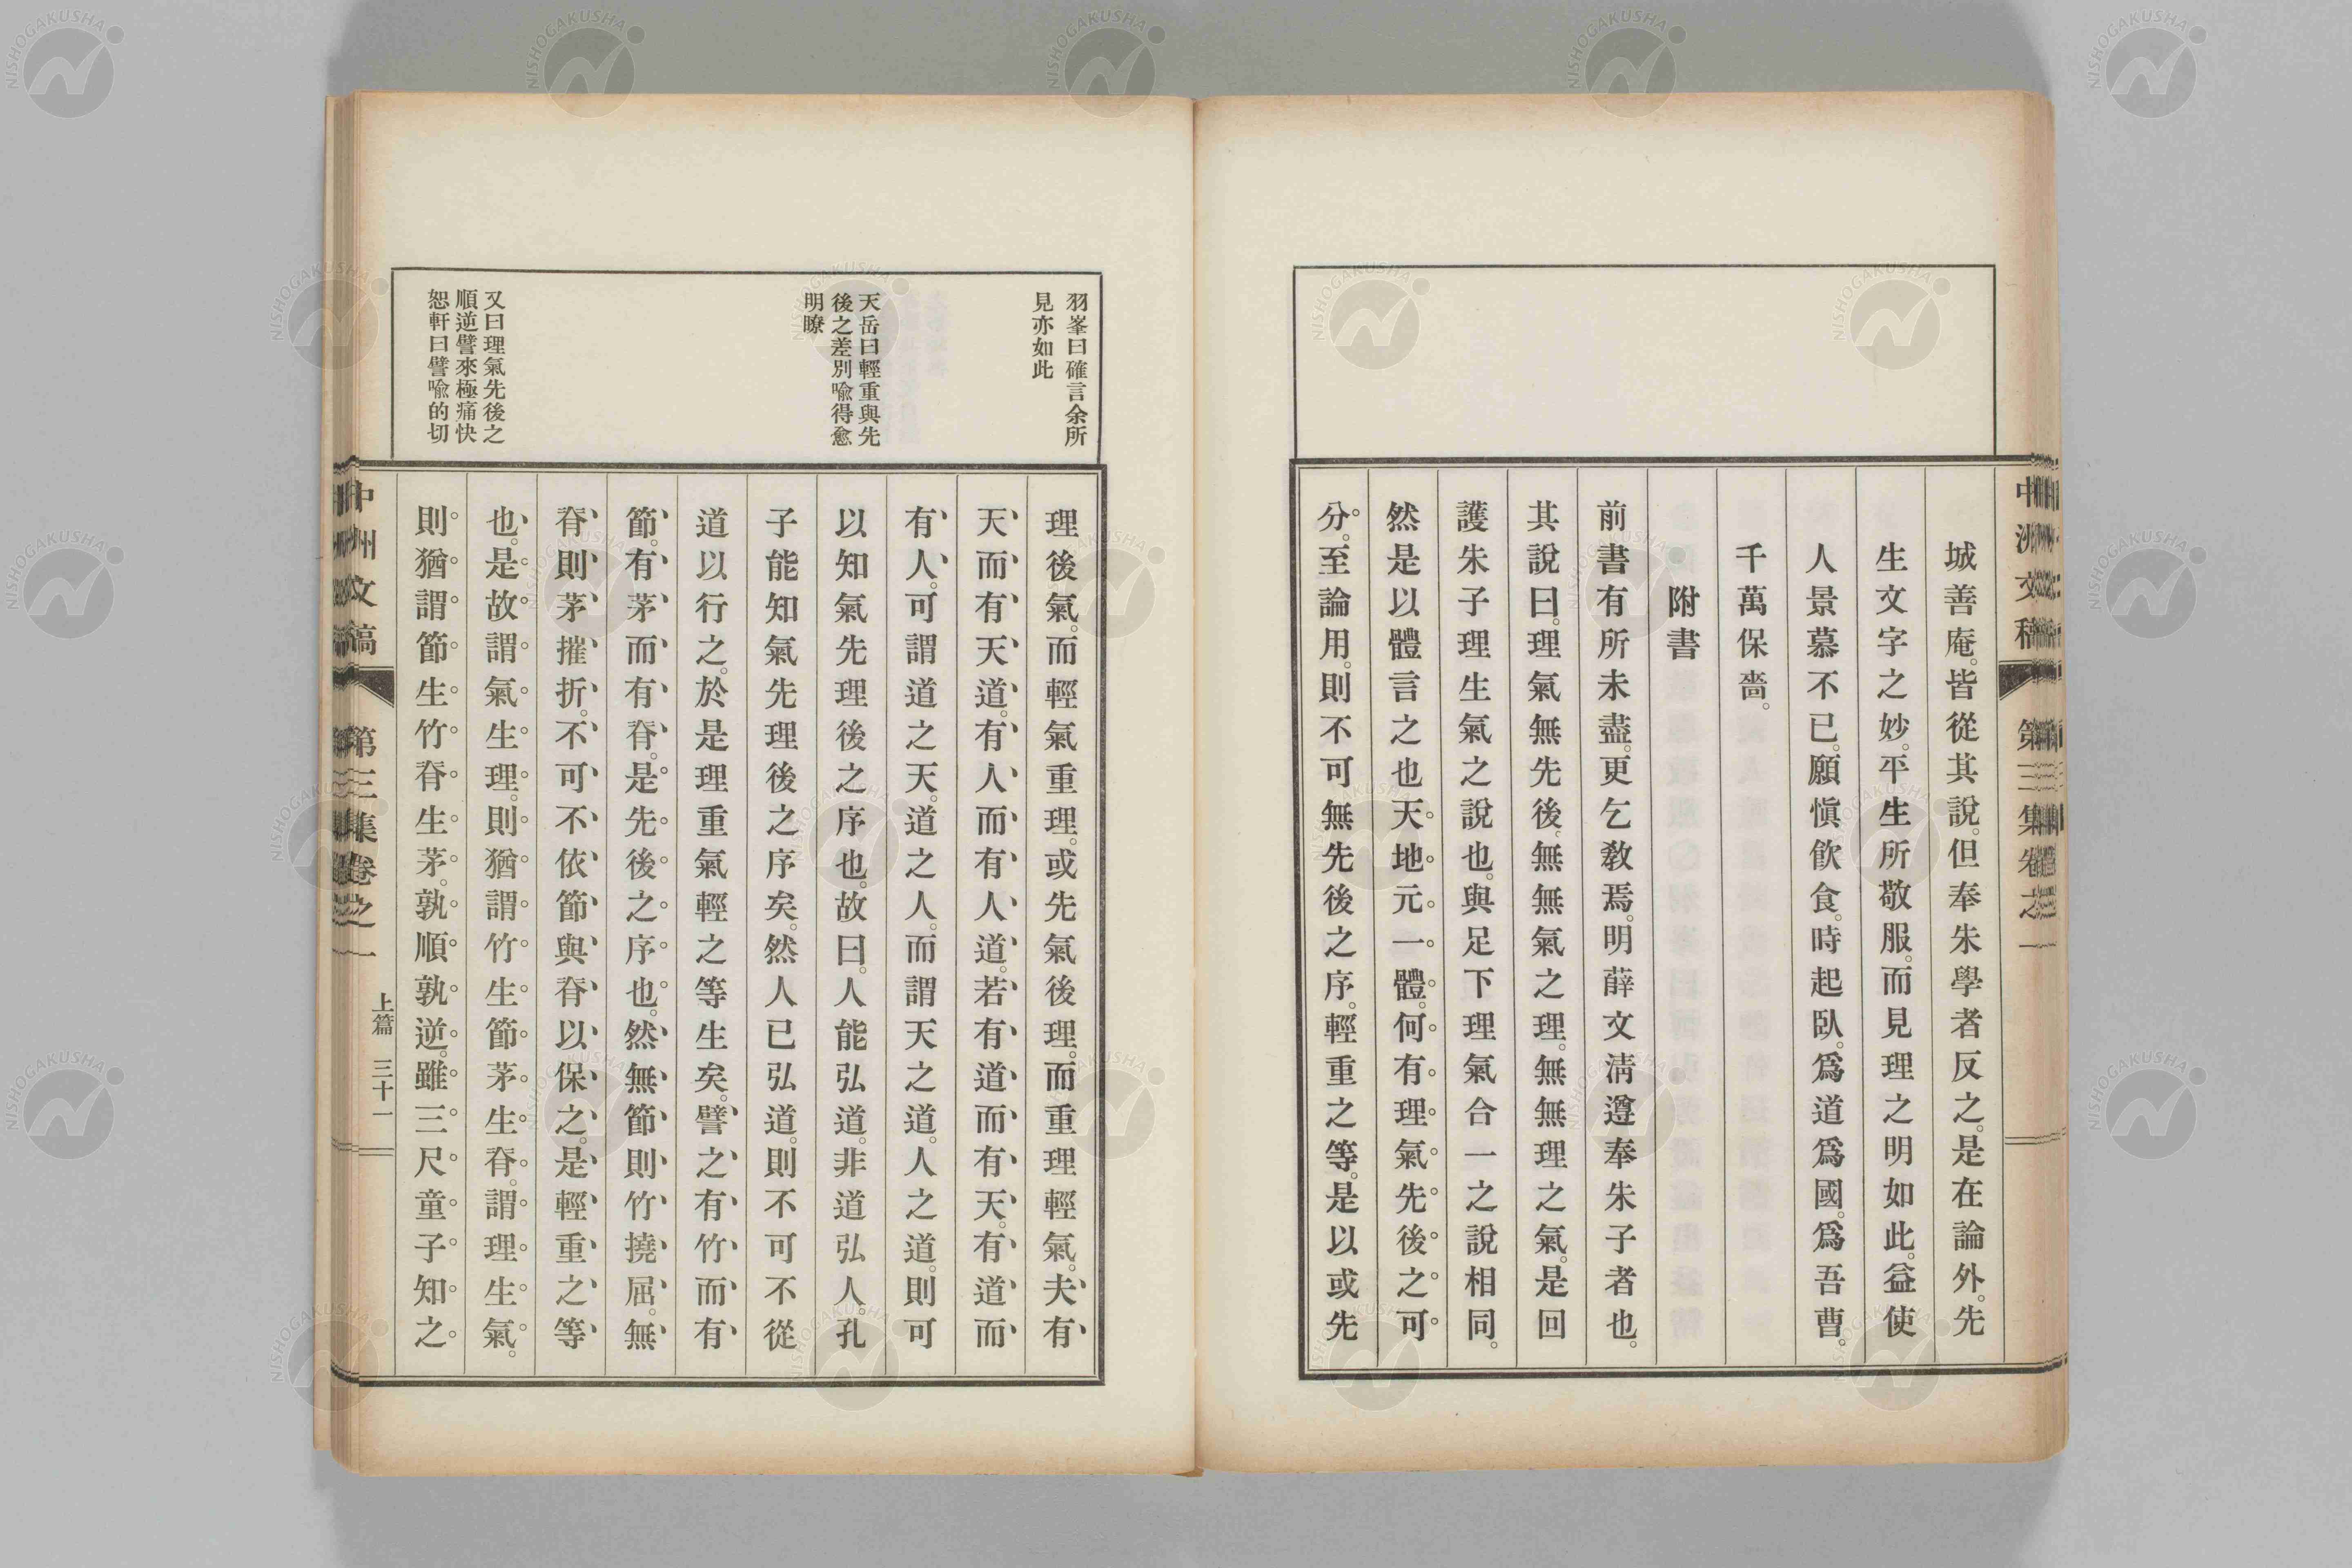 城善庵。皆從其說。但奉朱學者反之。是在論外。先
生文字之妙。平生所敬服。而見理之明如此。益使
人景慕不已。願愼飮食。時起臥。爲道爲國。爲吾曹。
千萬保嗇。
附書
前書有所未盡。更乞敎焉。明薛文淸遵奉朱子者也。
其說曰。理氣無先後。無無氣之理。無無理之氣。是回
護朱子理生氣之說也。與足下理氣合一之說相同。
然是以體言之也。天地元一體。何有理氣先後之可
分。至論用。則不可無先後之序。輕重之等。是以或先
理後氣。而輕氣重理。或先氣後理。而重理輕氣。夫有
天而有天道。有人而有人道。若有道而有天。有道而
有人。可謂道之天。道之人。而謂天之道。人之道。則可
以知氣先理後之序也。故曰。人能弘道。非道弘人。孔
子能知氣先理後之序矣。然人已弘道。則不可不從
道以行之。於是理重氣輕之等生矣。譬之有竹而有
節。有茅而有脊。是先後之序也。然無節則竹撓屈。無
脊則茅摧折。不可不依節與脊以保之。是輕重之等
也。是故謂氣生理。則猶謂竹生節茅生脊。謂理生氣。
則猶謂節生竹脊生茅。孰順孰逆。雖三尺童子知之。
羽峯曰確言余所
見亦如此
天岳曰輕重與先
後之差別喩得愈
明瞭
又曰理氣先後之
順逆譬來極痛快
恕軒曰譬喩的切
中洲文稿
第三集卷之一
上篇 三十一
中洲文稿
第三集卷之一
NISHOGAKUSHA